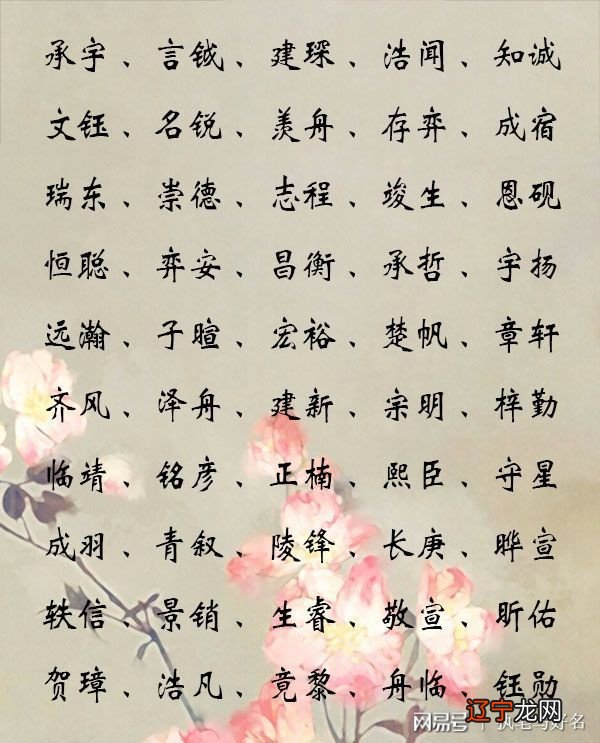 承宇、言钺、建琛、浩闻、知诚
文钰、名锐、羡舟、存弈、成宿
瑞东、崇德、志程、竣生、恩砚
恒聪、弈安、昌衡、承哲、宇扬
远瀚、子暄、宏裕、楚帆、章轩
齐风、泽舟、建新、宗明、梓勤
临靖、铭彦、正楠、熙臣、守星
成羽、青叙、陵锋、长庚、晔宣
轶信、景销、生睿、敬宣、昕佑
贺璋、浩凡、竟黎、舟临、钰勋
辽宁龙网
网易号
好名